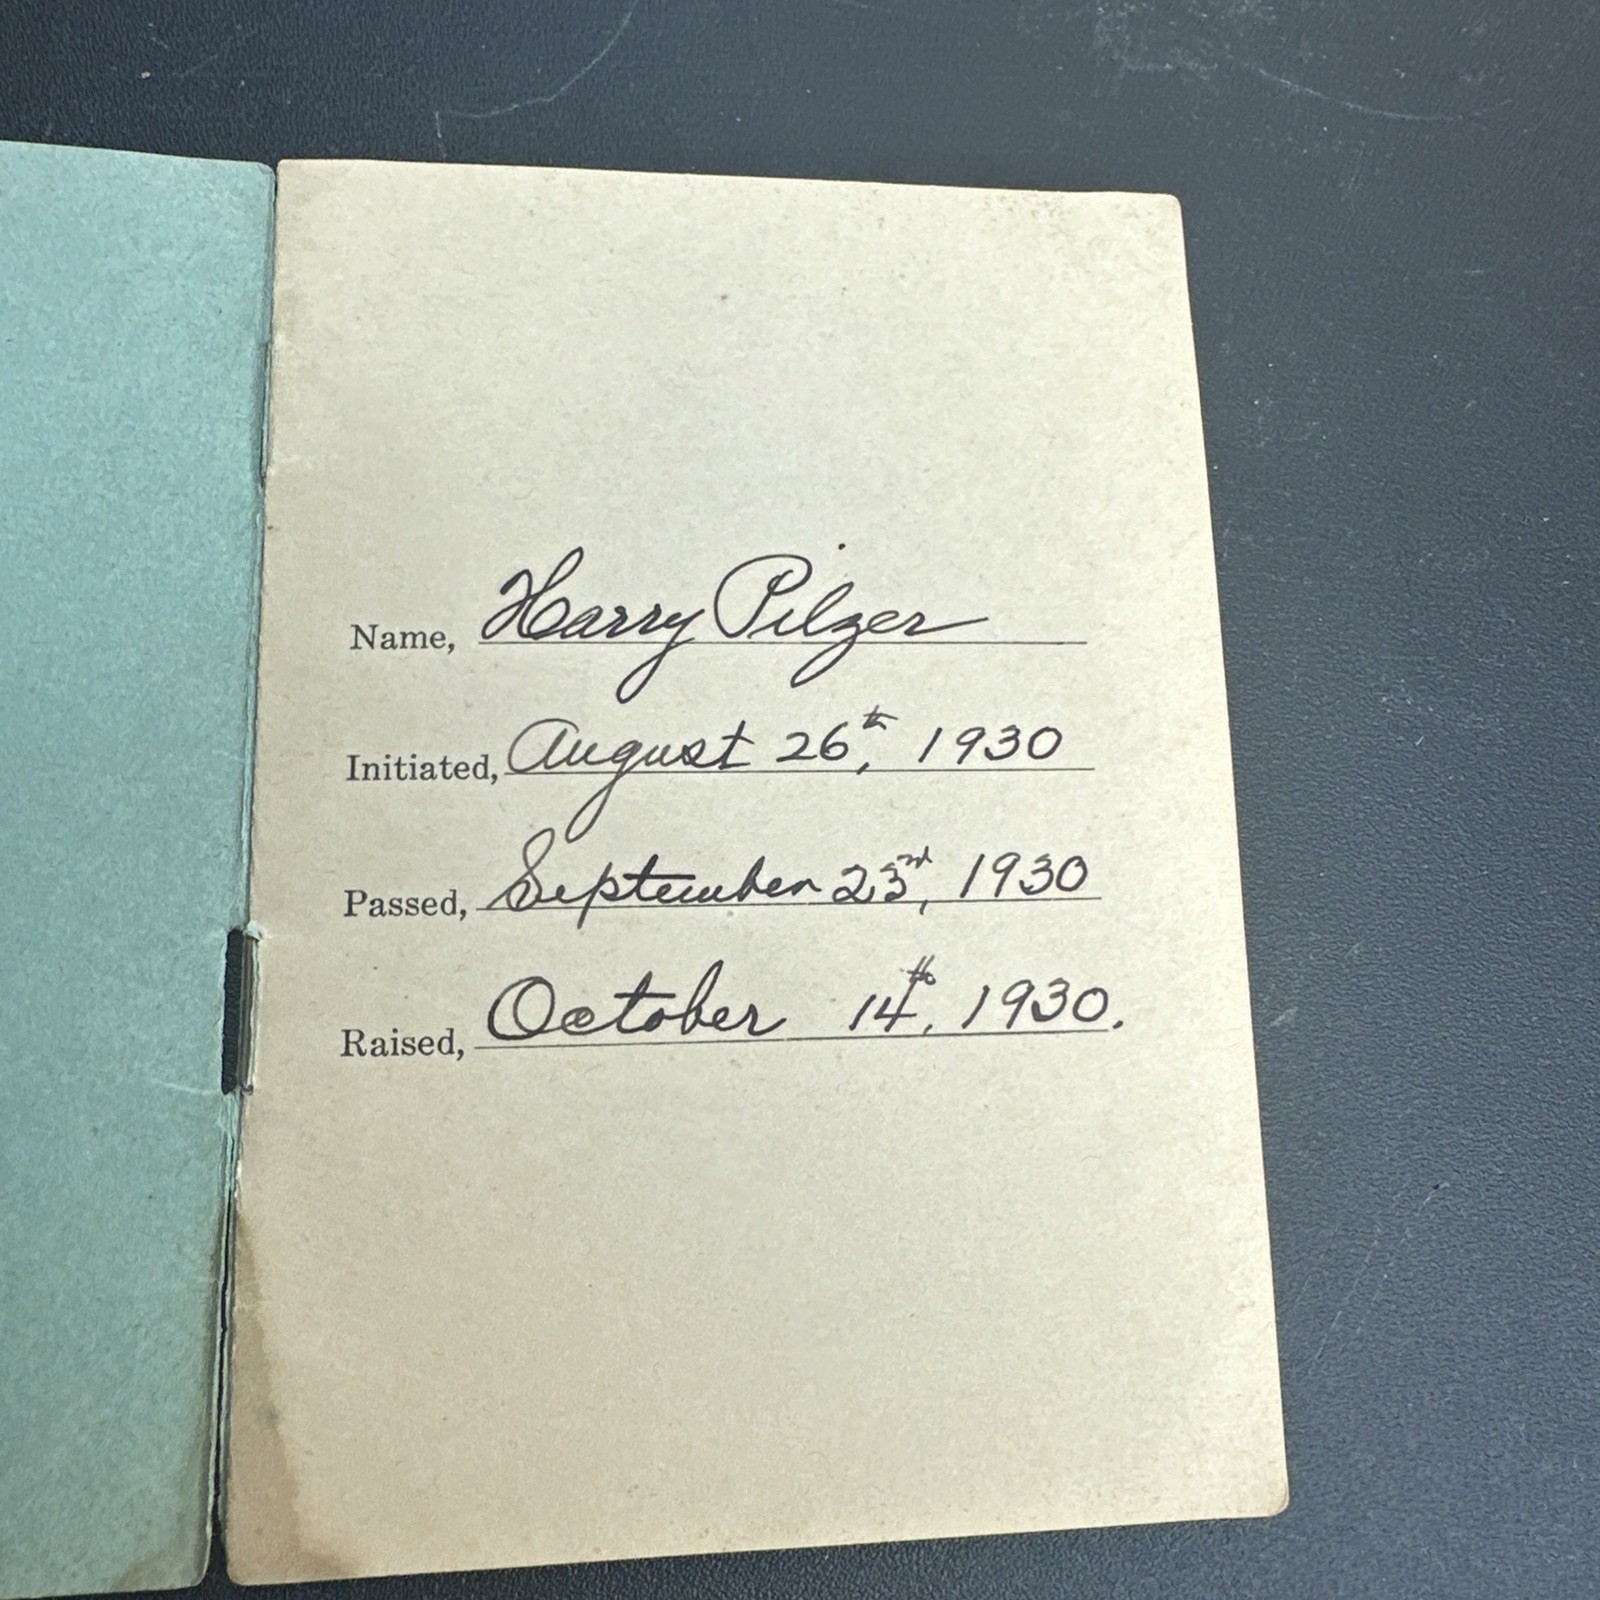 Name, Harry Pilzer
Initiated, August 26th, 1930
Passed, September 23rd, 1930
Raised, October 14th, 1930.